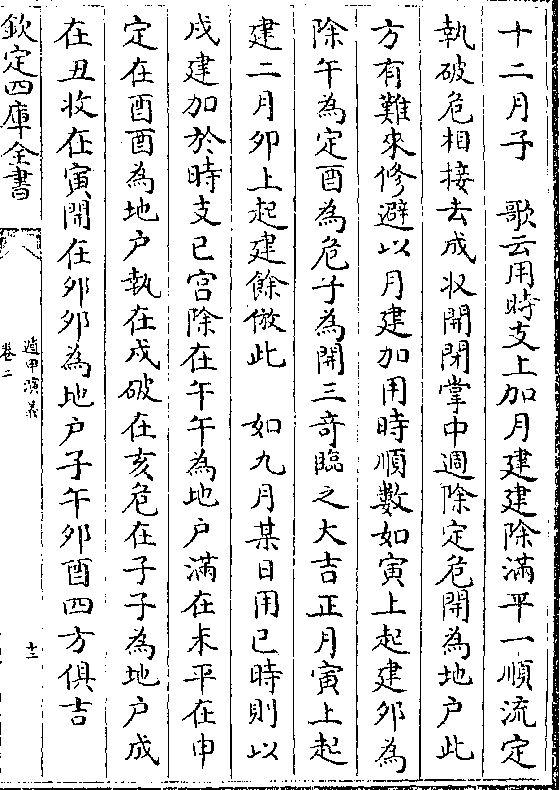 十二月子　　歌云用時支上加月建建除滿平一順流定
執破危相接去成収開閉掌中週除定危開為地户此
方有難來修避以月建加用時順數如寅上起建夘為
除午為定酉為危子為開三竒臨之大吉正月寅上起
建二月夘上起建餘倣此　如九月某日用巳時則以
戌建加於時支巳宫除在午午為地户滿在未平在申
定在酉酉為地户執在戌破在亥危在子子為地户成
在丑收在寅開在夘夘為地户子午夘酉四方俱吉
欽定四庫全書
遁甲演義
卷二
十三